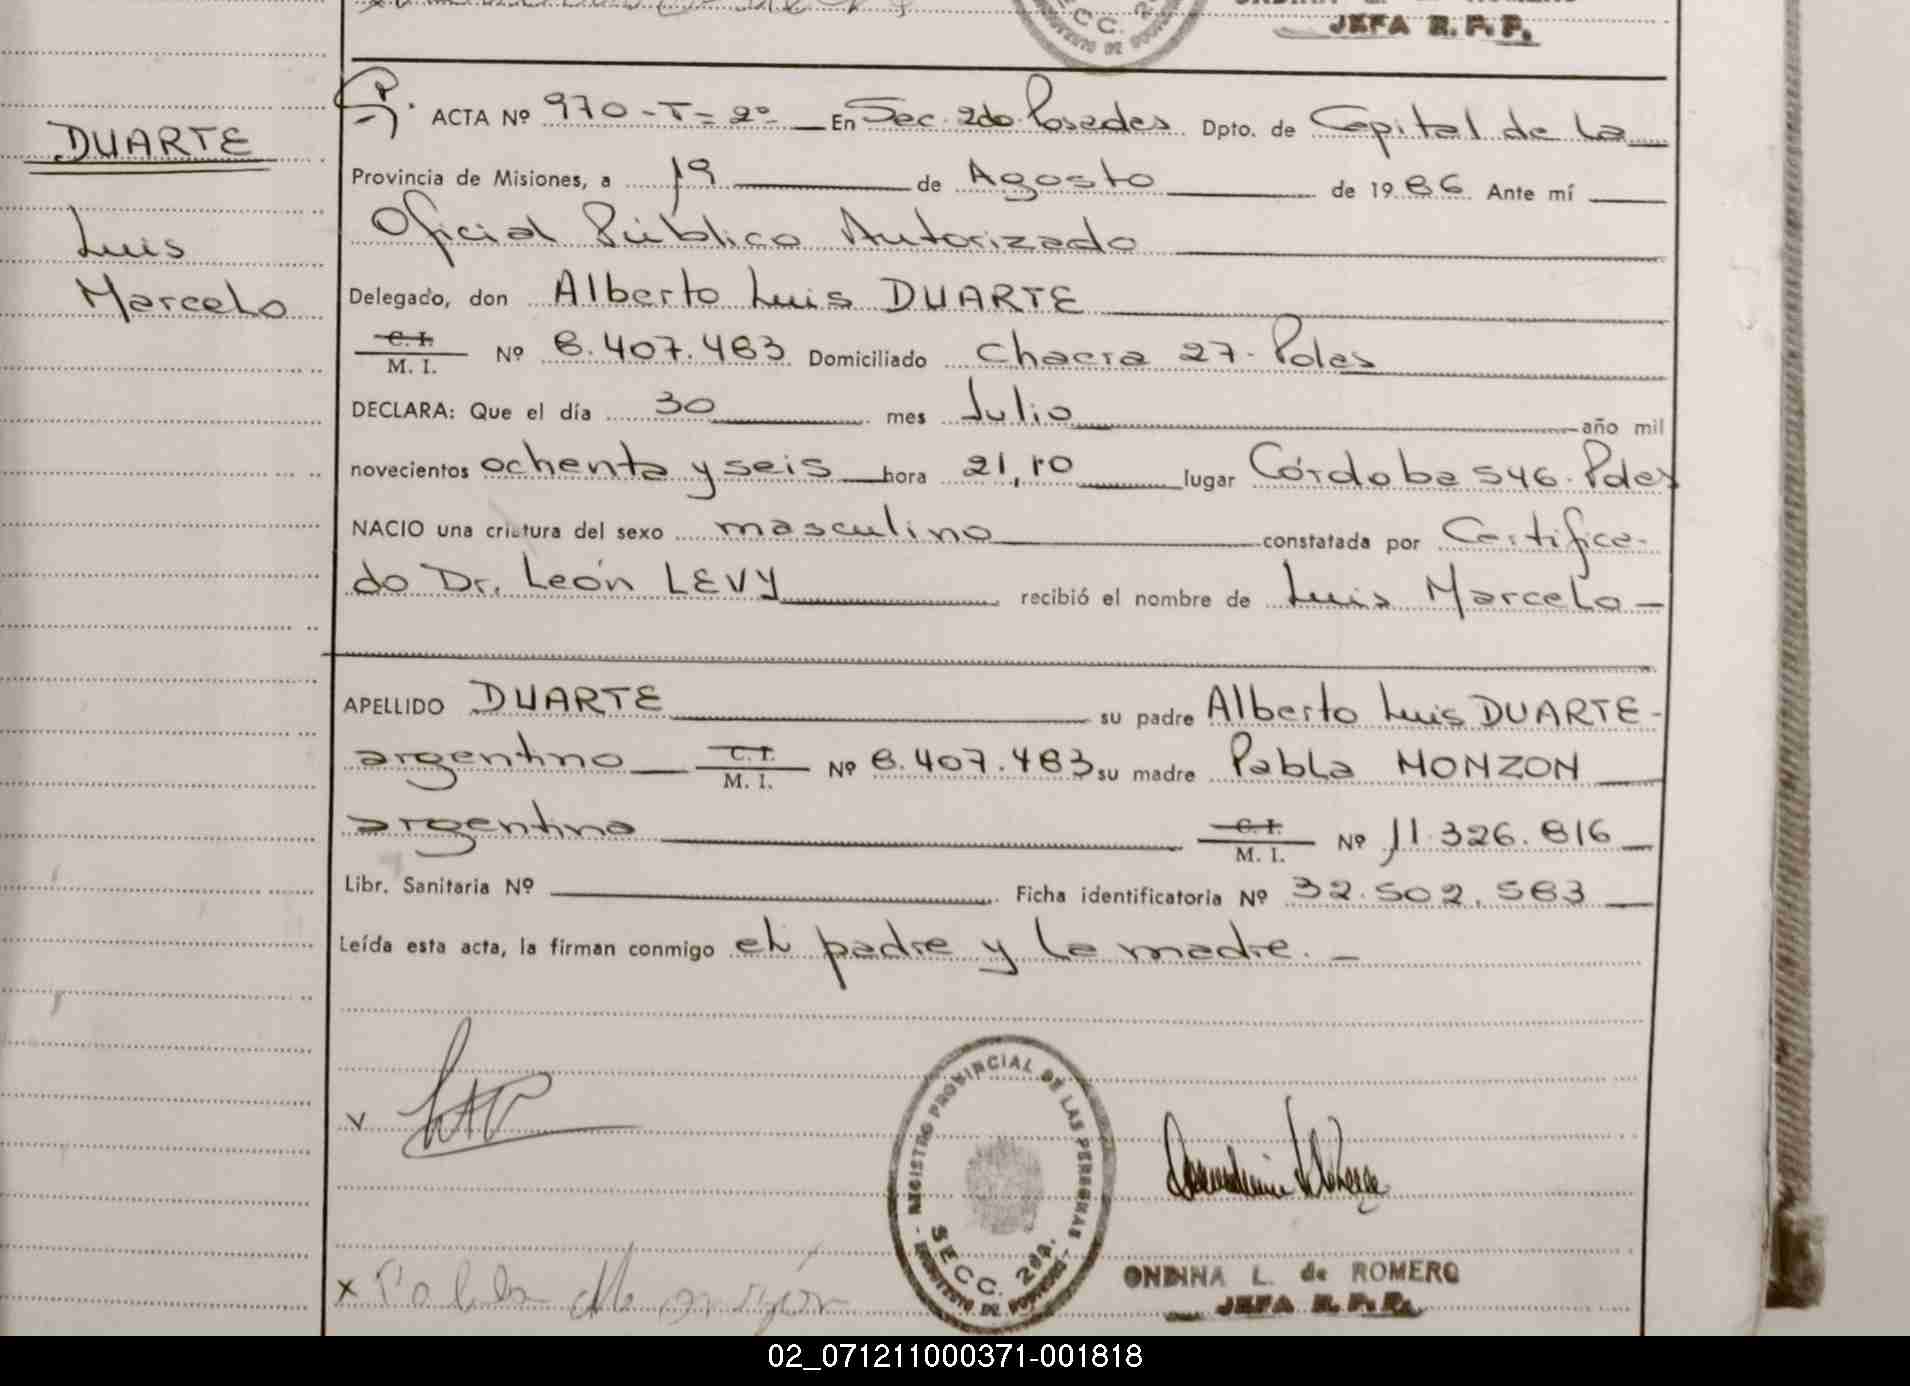 JEFA R. P. P.
DUARTE
Luis
Marcelo
ACTA Nº 970 - T= 2º En Sec. 2do Posadas Dpto. de Capital de la
Provincia de Misiones, a 19 de Agosto de 1986 Ante mí
Oficial Público Autorizado
Delegado, don Alberto Luis DUARTE
C. I.
M. I. Nº 8.407.483 Domiciliado Chacra 27 - Pdas
DECLARA: Que el día 30 mes Julio año mil
novecientos ochenta y seis hora 21,10 lugar Córdoba 546. Pdas
NACIO una criatura del sexo masculino constatada por Certifica-
do Dr. León LEVY recibió el nombre de Luis Marcelo -
APELLIDO DUARTE su padre Alberto Luis DUARTE -
argentino C. I.
M. I. Nº 8.407.483 su madre Pabla MONZON
argentina C. I.
M. I. Nº 11.326.816
Libr. Sanitaria Nº Ficha identificatoria Nº 32.502.583
Leída esta acta, la firman conmigo el padre y la madre. -
REGISTRO PROVINCIAL DE LAS PERSONAS
SECC. 2da.
ONDINA L. de ROMERO
JEFA R. P. P.
02_071211000371-001818